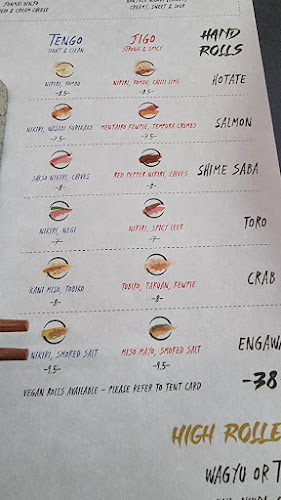 TENGO
LIGHT & CLEAN
JIGO
STRONG & SPICY
HAND
ROLLS
NIKIRI, KOMBU
-8.5-
NIKIRI, KOMBU, CHILI LIME
-8.5-
HOTATE
NIKIRI, WASABI FURIKAKE
-7.5-
MENTAIKO KEWPIE, TEMPURA CRUMBS
-7.5-
SALMON
SHISO NIKIRI, CHIVES
-8-
RED PEPPER NIKIRI, CHIVES
-8-
SHIME SABA
NIKIRI, NEGI
-7-
NIKIRI, SPICY LEEK
-7-
TORO
KANI MISO, TOBIKO
-8-
TOBIKO, TAKUAN, KEWPIE
-8-
CRAB
NIKIRI, SMOKED SALT
-9.5-
MISO MAYO, SMOKED SALT
-9.5-
ENGAWA
-38
VEGAN ROLLS AVAILABLE - PLEASE REFER TO TENT CARD
HIGH ROLLE
WAGYU OR T